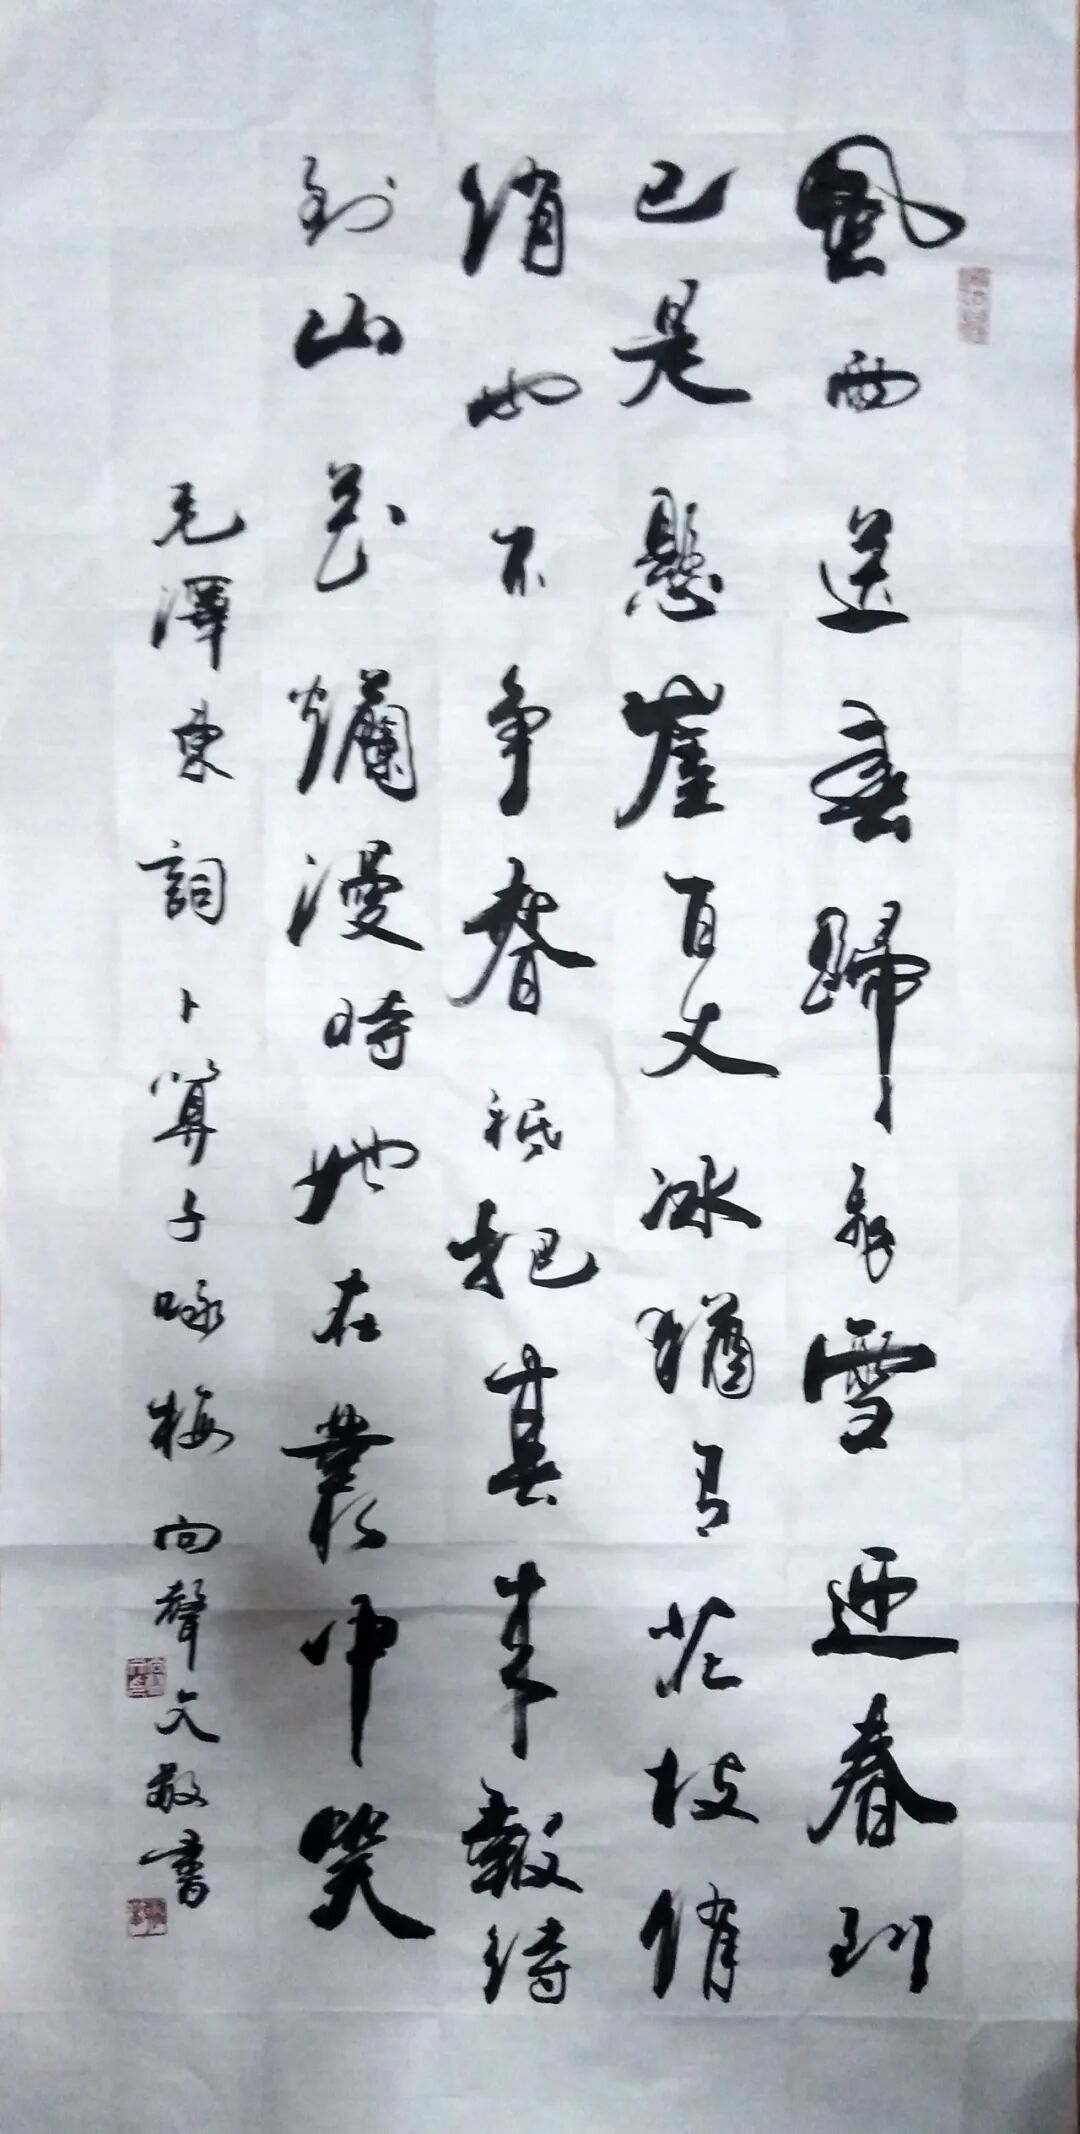 風雨送春歸飛雪迎春到
已是懸崖百丈冰猶有花枝俏
俏也不争春祗把春来報待
到山花爛漫時她在叢中笑
毛澤東詞卜算子咏梅向聲文敬書